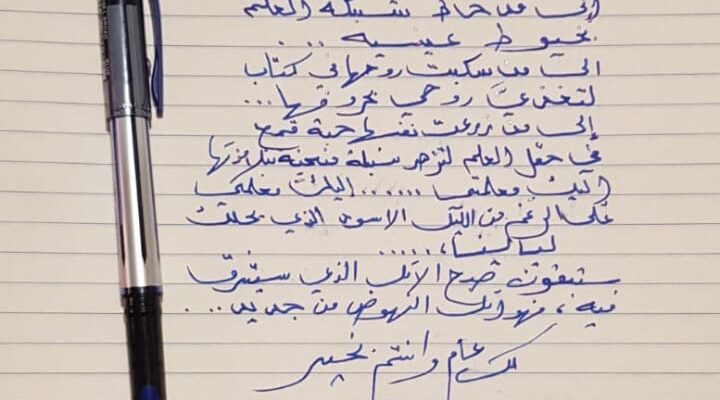 إلى من حاك شبكة العلم
بخيوط عينيه ...
إلى من سكبت روحها في كتاب
لتغذي روحي بحروفها ...
إلى من زرعت نفسها حبة قمح
في حقل العلم لتزهر سنبلة منحنية لتلامذتها
إليك معلمتي ...... إليك معلمي
على الرغم من الليل الاسود الذي يحتل
ليالينا، .....
ستبقون صرح الأمل الذي سيشرق
فيه، فهو أمل النهوض من جديد ...
كل عام وانتم بخير